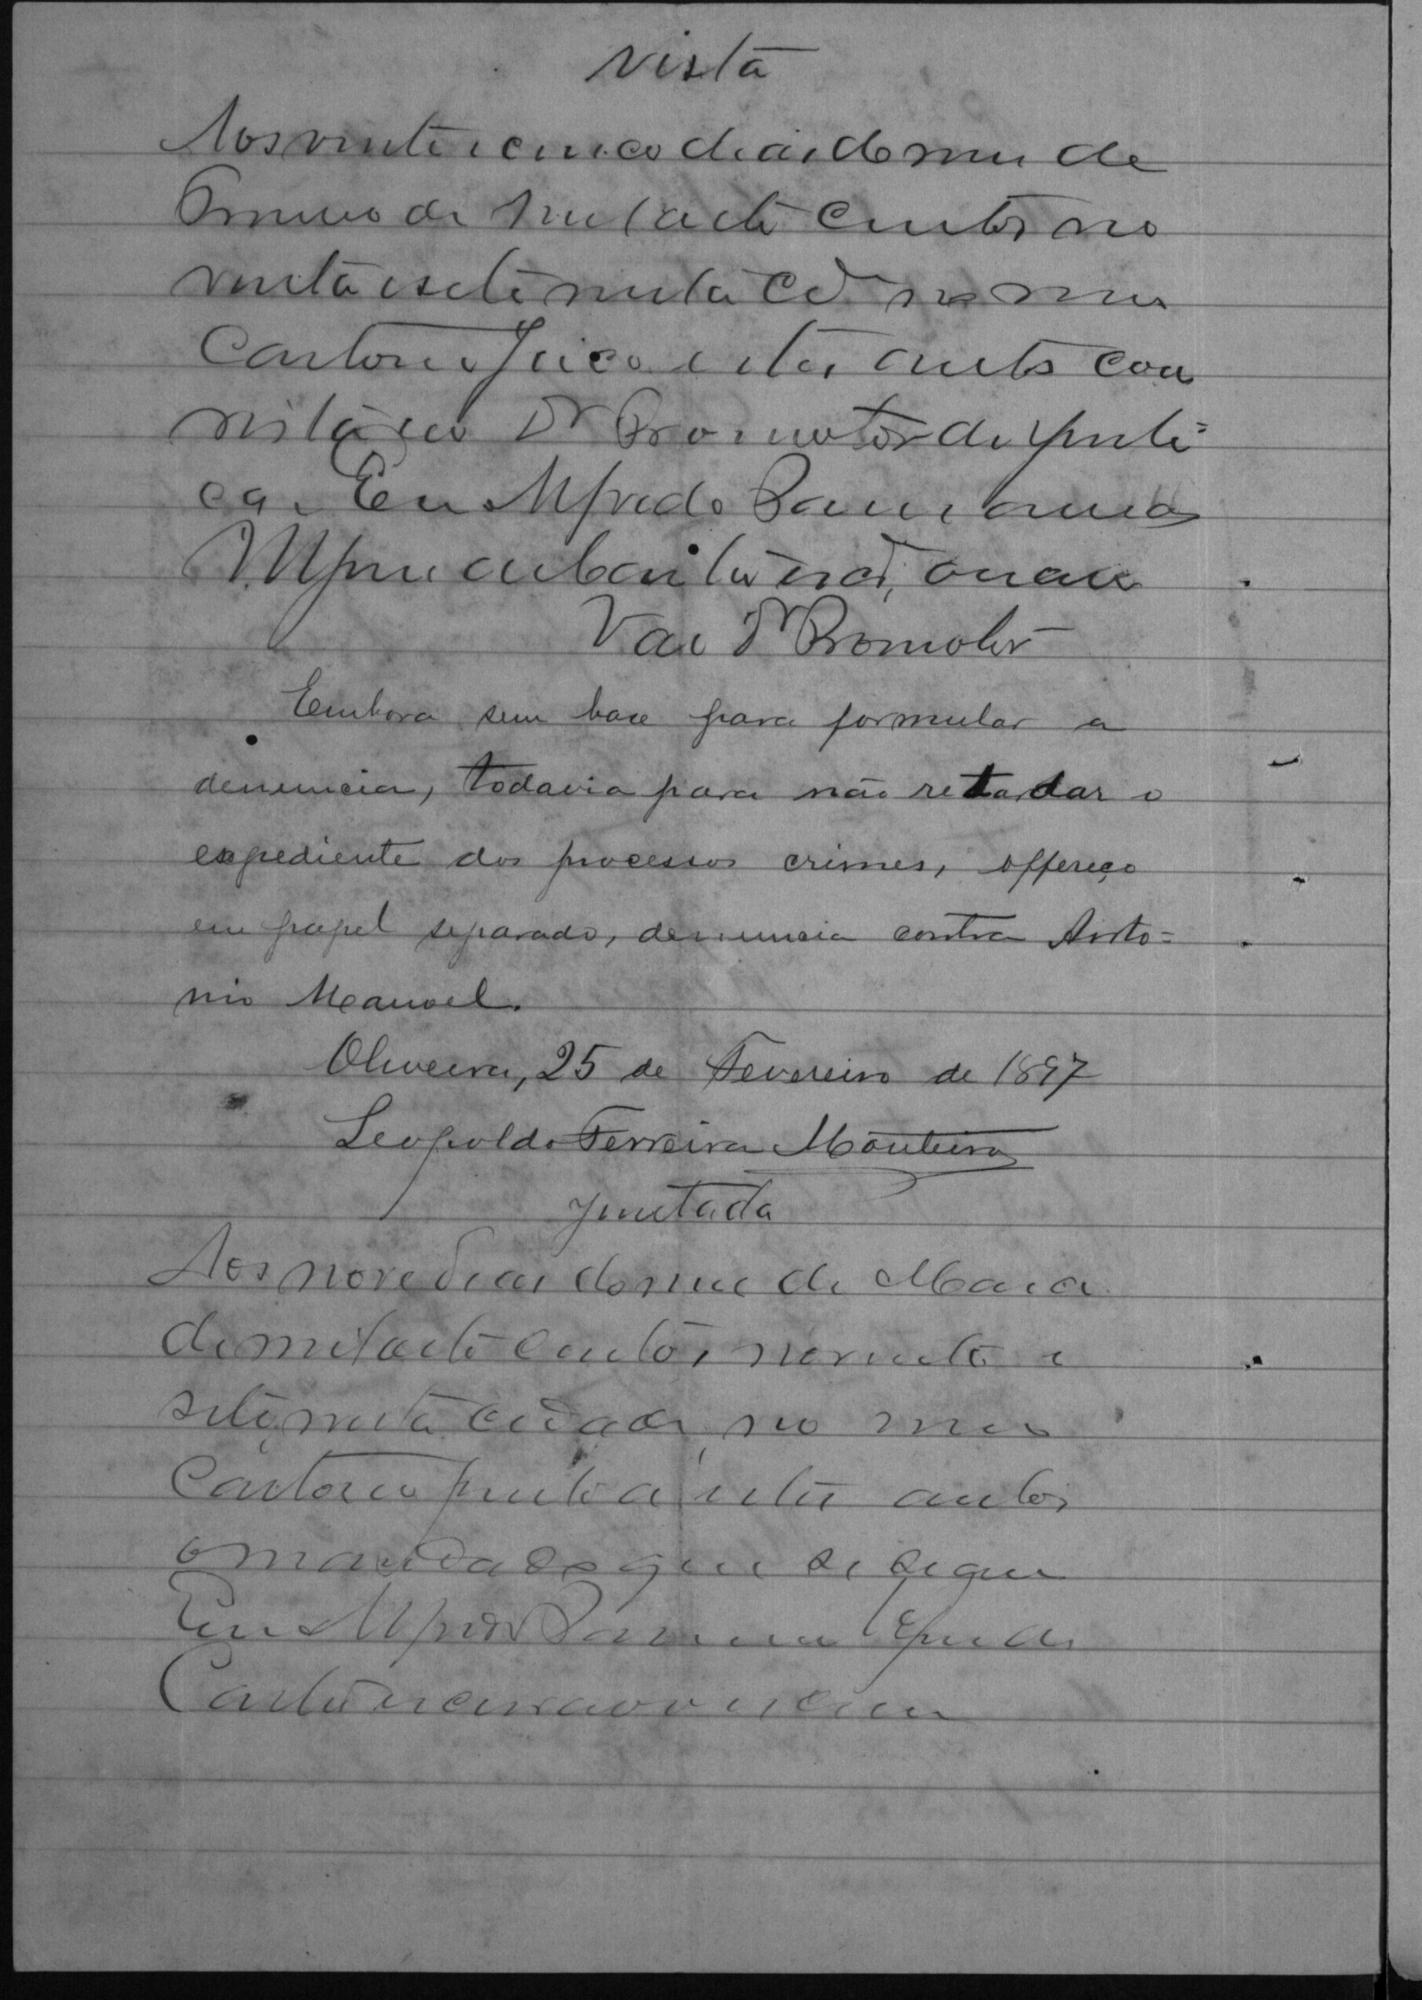 vista
Aos vinte e cinco dias do mes de
de mil oito centos no
venta e sete nesta Cd no meu
Cartorio faço estes autos com
vista ao Dr Promotor da Justi=
ça. Eu Alfredo

Vae Dr Promotor
Embora sem base para formular a
denuncia, todavia para não retardar o
expediente dos processos crimes, offereço
em papel separado, denuncia contra Anto=
nio Manoel.
Oliveira, 25 de Fevereiro de 1897
Leopoldo Ferreira Monteiro
Juntada
Aos nove dias do mes de Março
de mil oito centos noventa e
sete, nesta cidade, no meu
Cartorio junto a estes autos
o mandado que se segue
Eu Alfredo